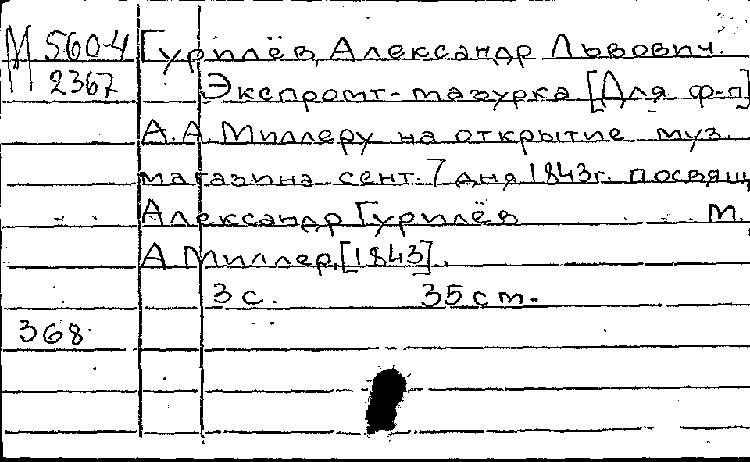 М 560-4 Гурилёв, Александр Львович.
2367 Экспромт-мазурка [Для ф-п]
А.А. Миллеру на открытие муз.
магазина сент. 7 дня 1843г. посвящ
Александр Гурилёв М.,
А Миллер, [1843].
3 с. 35 см.
368